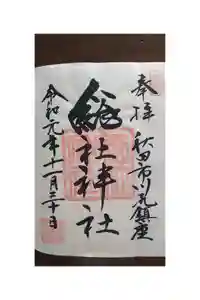 奉拝
秋田市川尻鎮座
総社神社
令和元年十一月二十日